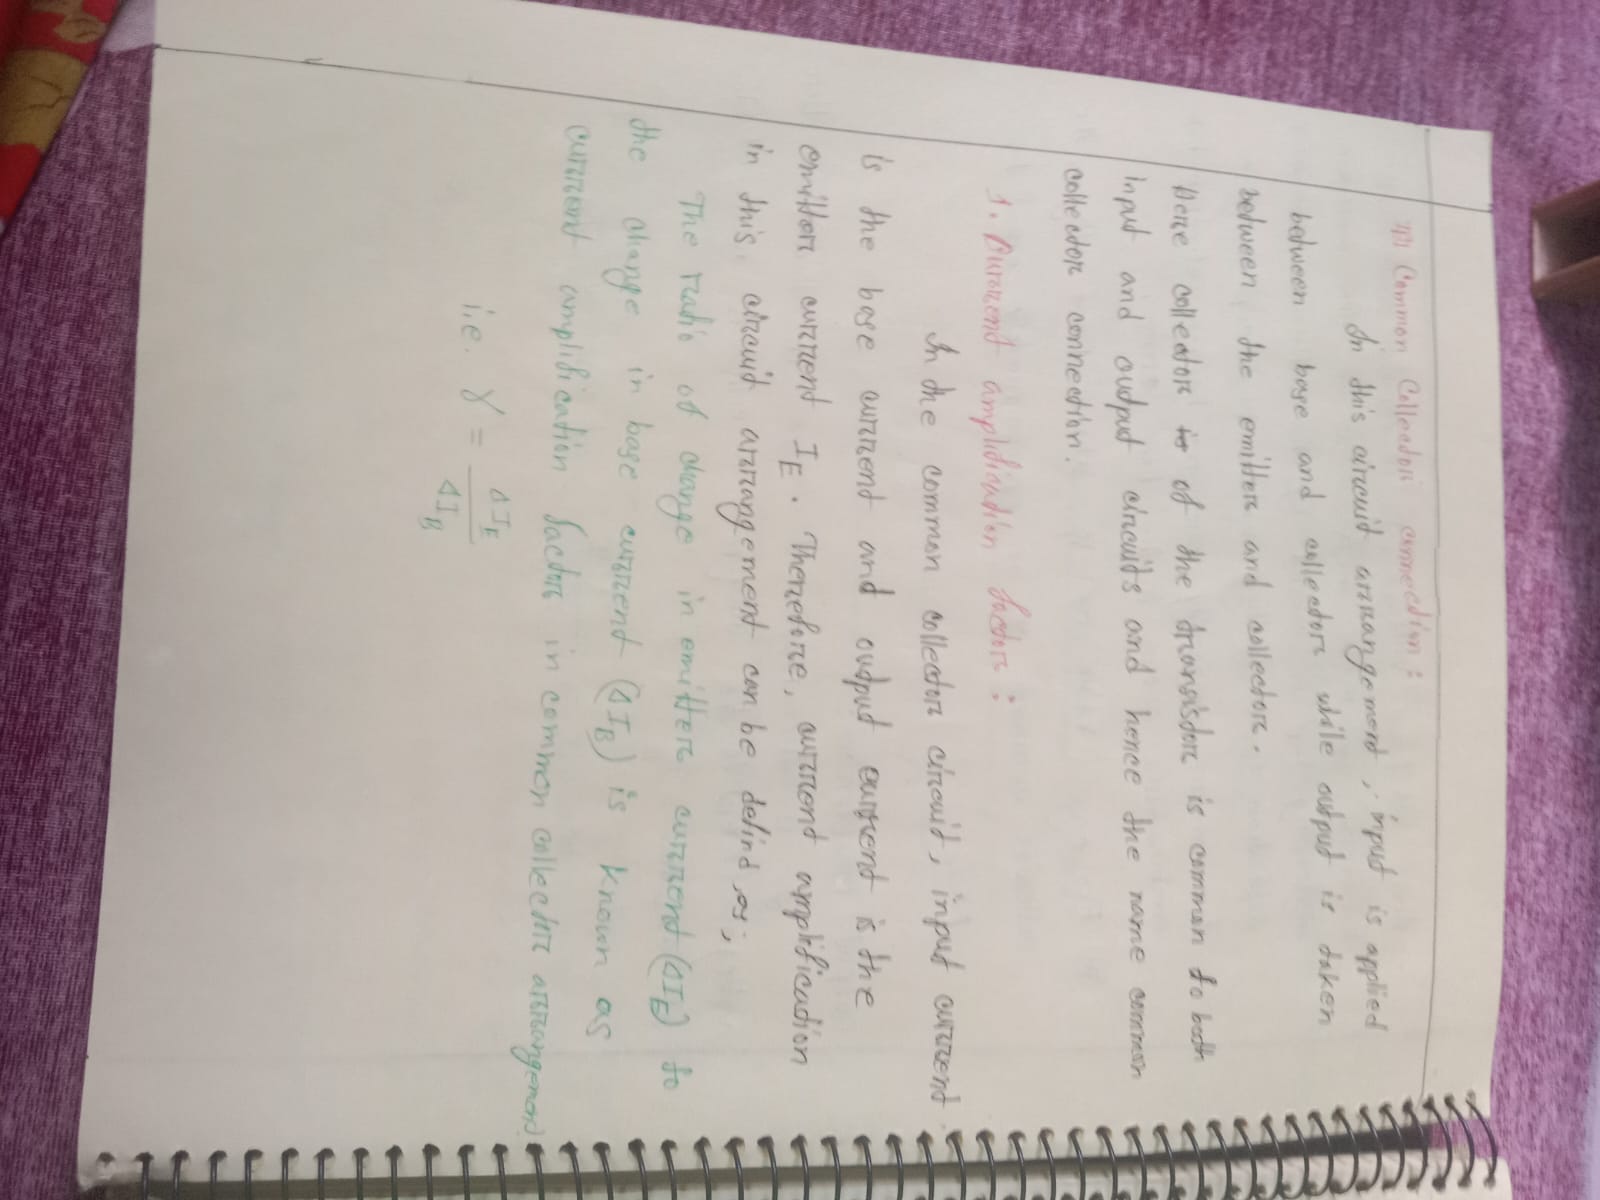 iii) Common Collector connection :
In this circuit arrangement, input is applied
between base and collector while output is taken
between the emitter and collector.
Here collector to of the transistor is common to both
input and output circuits and hence the name common
collector connection.
1. Current amplification factor :
In the common collector circuit, input current
is the base current and output current is the
emitter current I_E. Therefore, current amplification
in this circuit arrangement can be defind as;
The ratio of change in emitter current (ΔI_E) to
the change in base current (ΔI_B) is known as
current amplification factor in common collector arrangement.
i.e. γ = ΔI_E / ΔI_B